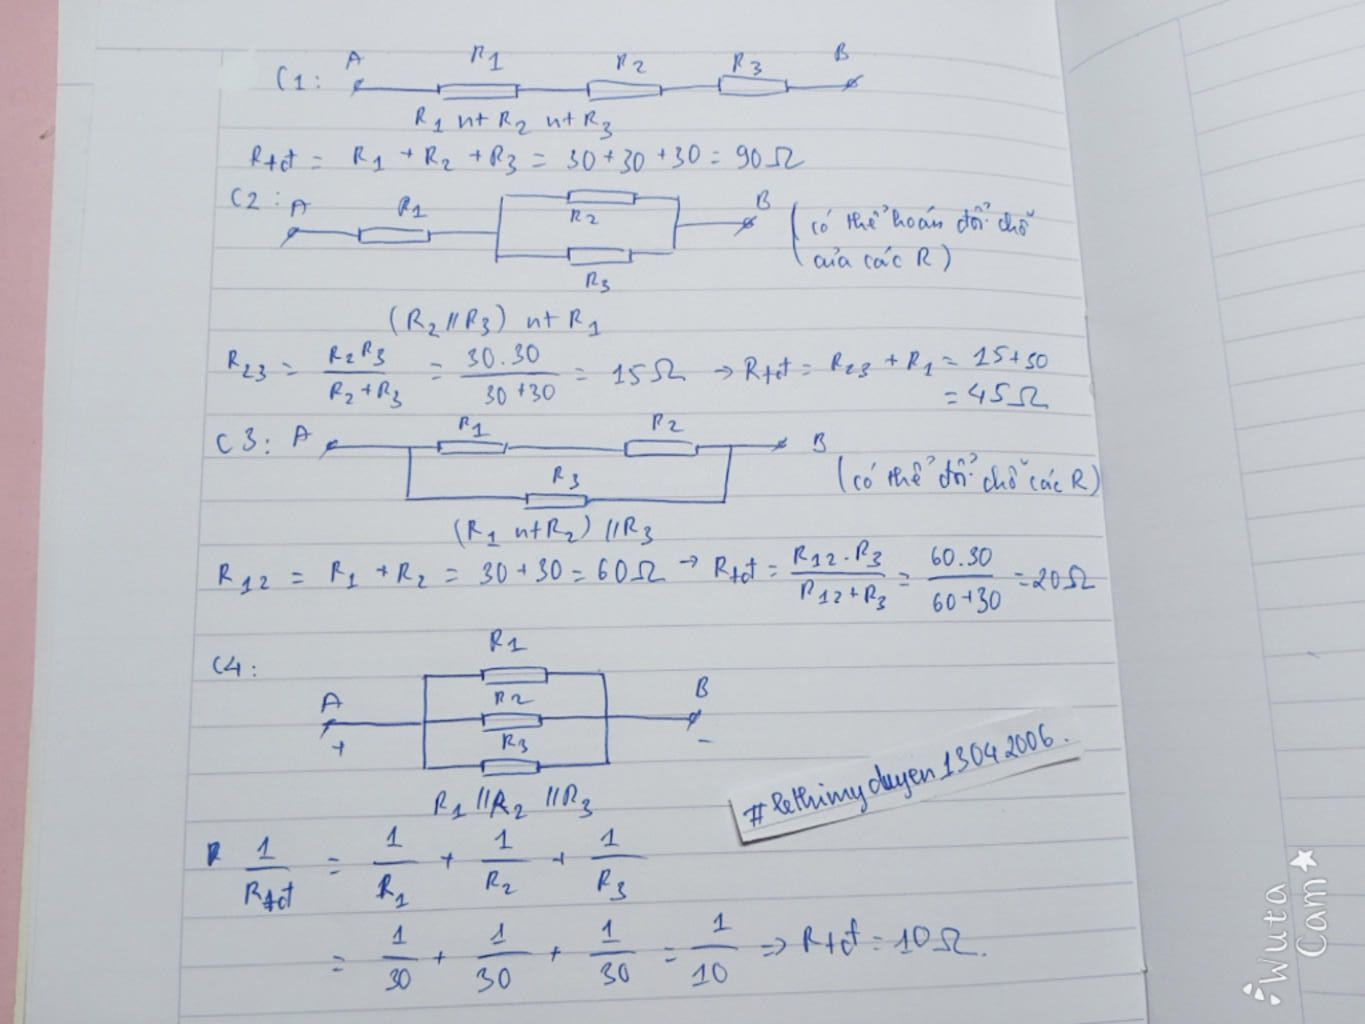 C1: A R1 R2 R3 B
R1 nt R2 nt R3
Rtđ = R1 + R2 + R3 = 30 + 30 + 30 = 90Ω
C2: A R1 R2 B (có thể hoán đổi chỗ
của các R)
R3
(R2 // R3) nt R1
R23 = R2R3 / R2 + R3 = 30.30 / 30 + 30 = 15Ω → Rtđ = R23 + R1 = 15 + 30
= 45Ω
C3: A R1 R2 B
R3 (có thể đổi chỗ các R)
(R1 nt R2) // R3
R12 = R1 + R2 = 30 + 30 = 60Ω → Rtđ = R12.R3 / R12 + R3 = 60.30 / 60 + 30 = 20Ω
R1
C4:
A R2 B
+ R3 -
R1 // R2 // R3
#lethimyduyen13042006.
1 / Rtđ = 1 / R1 + 1 / R2 + 1 / R3
= 1 / 30 + 1 / 30 + 1 / 30 = 1 / 10 => Rtđ = 10Ω.
Wuta
Cam